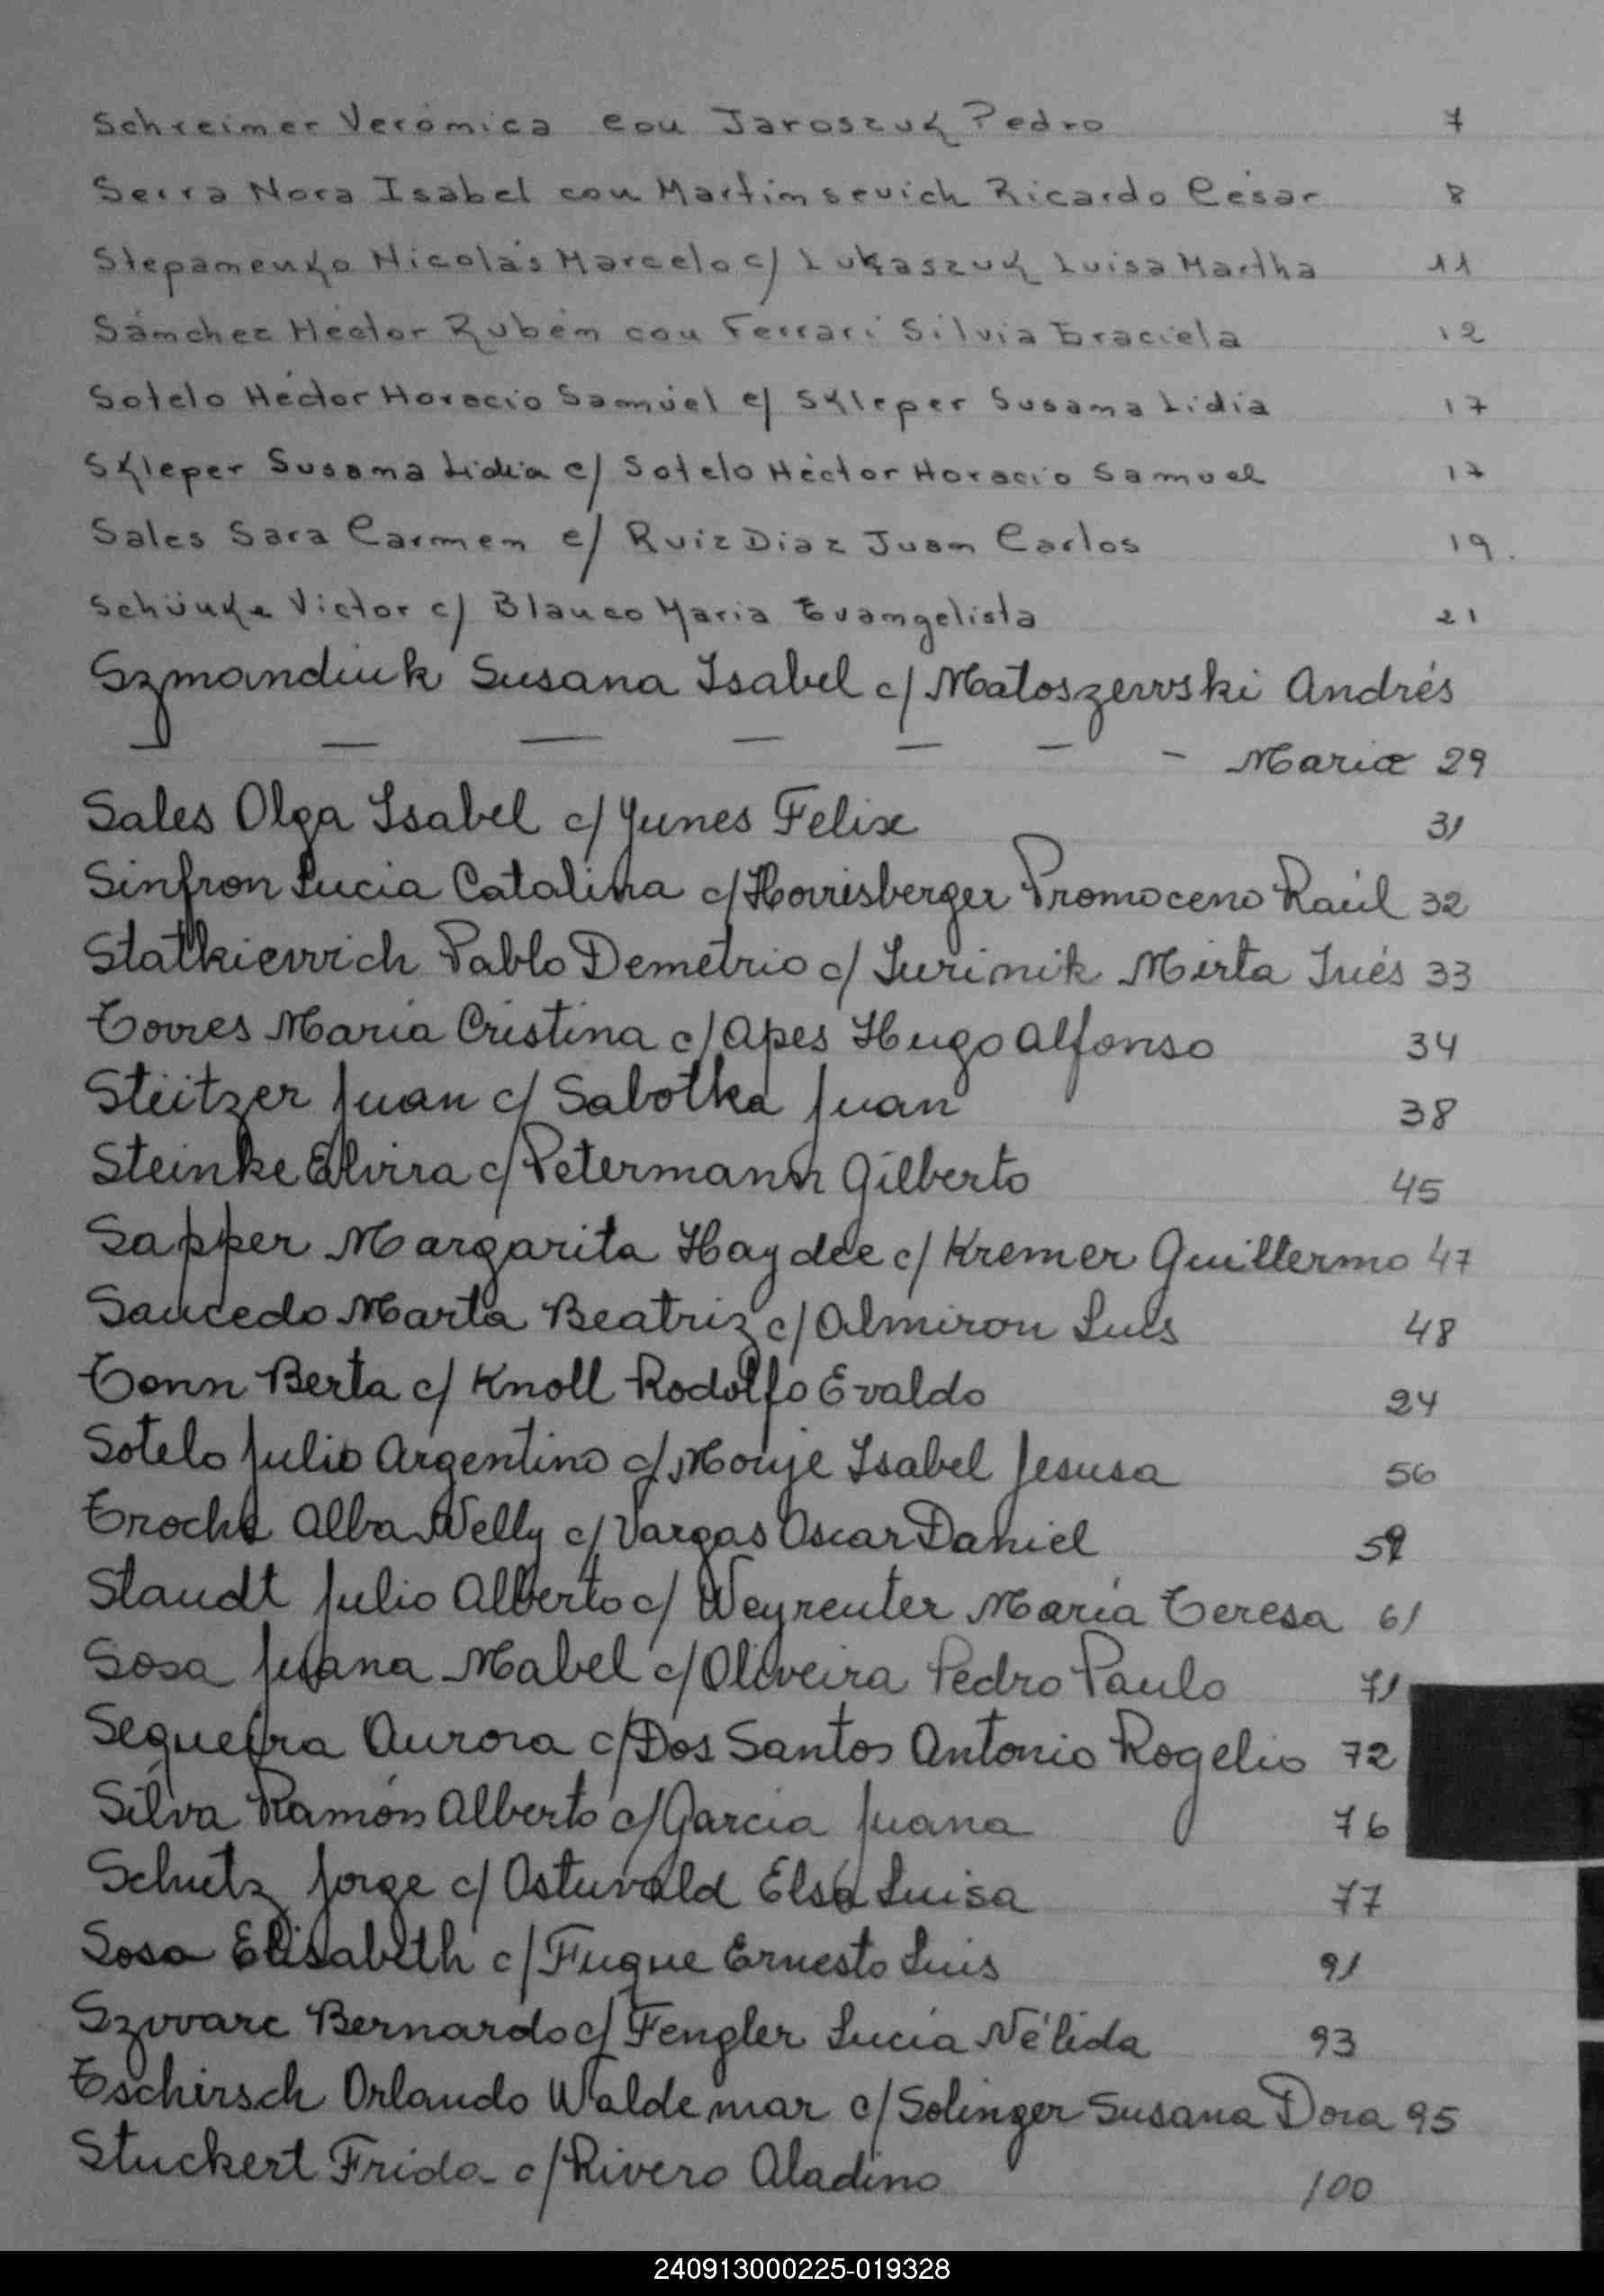 Schreimer Verónica con Jaroszuk Pedro 7
Serra Nora Isabel con Martinsevich Ricardo César 8
Stepanenko Nicolás Marcelo c/ Lukaszuk Luisa Martha 11
Sánchez Héctor Rubén con Ferrari Silvia Graciela 12
Sotelo Héctor Horacio Samuel c/ Skleper Susana Lidia 17
Skleper Susana Lidia c/ Sotelo Héctor Horacio Samuel 17
Sales Sara Carmen c/ Ruiz Diaz Juan Carlos 19.
Schünke Victor c/ Blanco Maria Evangelista 21
Szmandiuk Susana Isabel c/ Matoszewski Andrés
— — — — — — — Maria 29
Sales Olga Isabel c/ Yunes Felix 31
Sinfron Lucia Catalina c/ Horrisberger Promoceno Raúl 32
Statkiewich Pablo Demetrio c/ Lurinik Mirta Inés 33
Torres María Cristina c/ Apes Hugo Alfonso 34
Stüitzer Juan c/ Sabotka Juan 38
Steinke Elvira c/ Petermann Gilberto 45
Sapper Margarita Haydee c/ Kremer Guillermo 47
Saucedo Marta Beatriz c/ Almiron Luis 48
Tonn Berta c/ Knoll Rodolfo Evaldo 24
Sotelo Julio Argentino c/ Monje Isabel Jesusa 56
Troche Alba Nelly c/ Vargas Oscar Daniel 59
Staudt Julio Alberto c/ Weyreuter María Teresa 61
Sosa Juana Mabel c/ Oliveira Pedro Paulo 71
Sequeira Aurora c/ Dos Santos Antonio Rogelio 72
Silva Ramón Alberto c/ Garcia Juana 76
Schutz Jorge c/ Ostuvald Elsa Luisa 77
Sosa Elisabeth c/ Fuque Ernesto Luis 91
Szwarc Bernardo c/ Fengler Lucía Nélida 93
Tschirsch Orlando Waldemar c/ Solinger Susana Dora 95
Stuckert Frida c/ Rivero Aladino 100
240913000225-019328